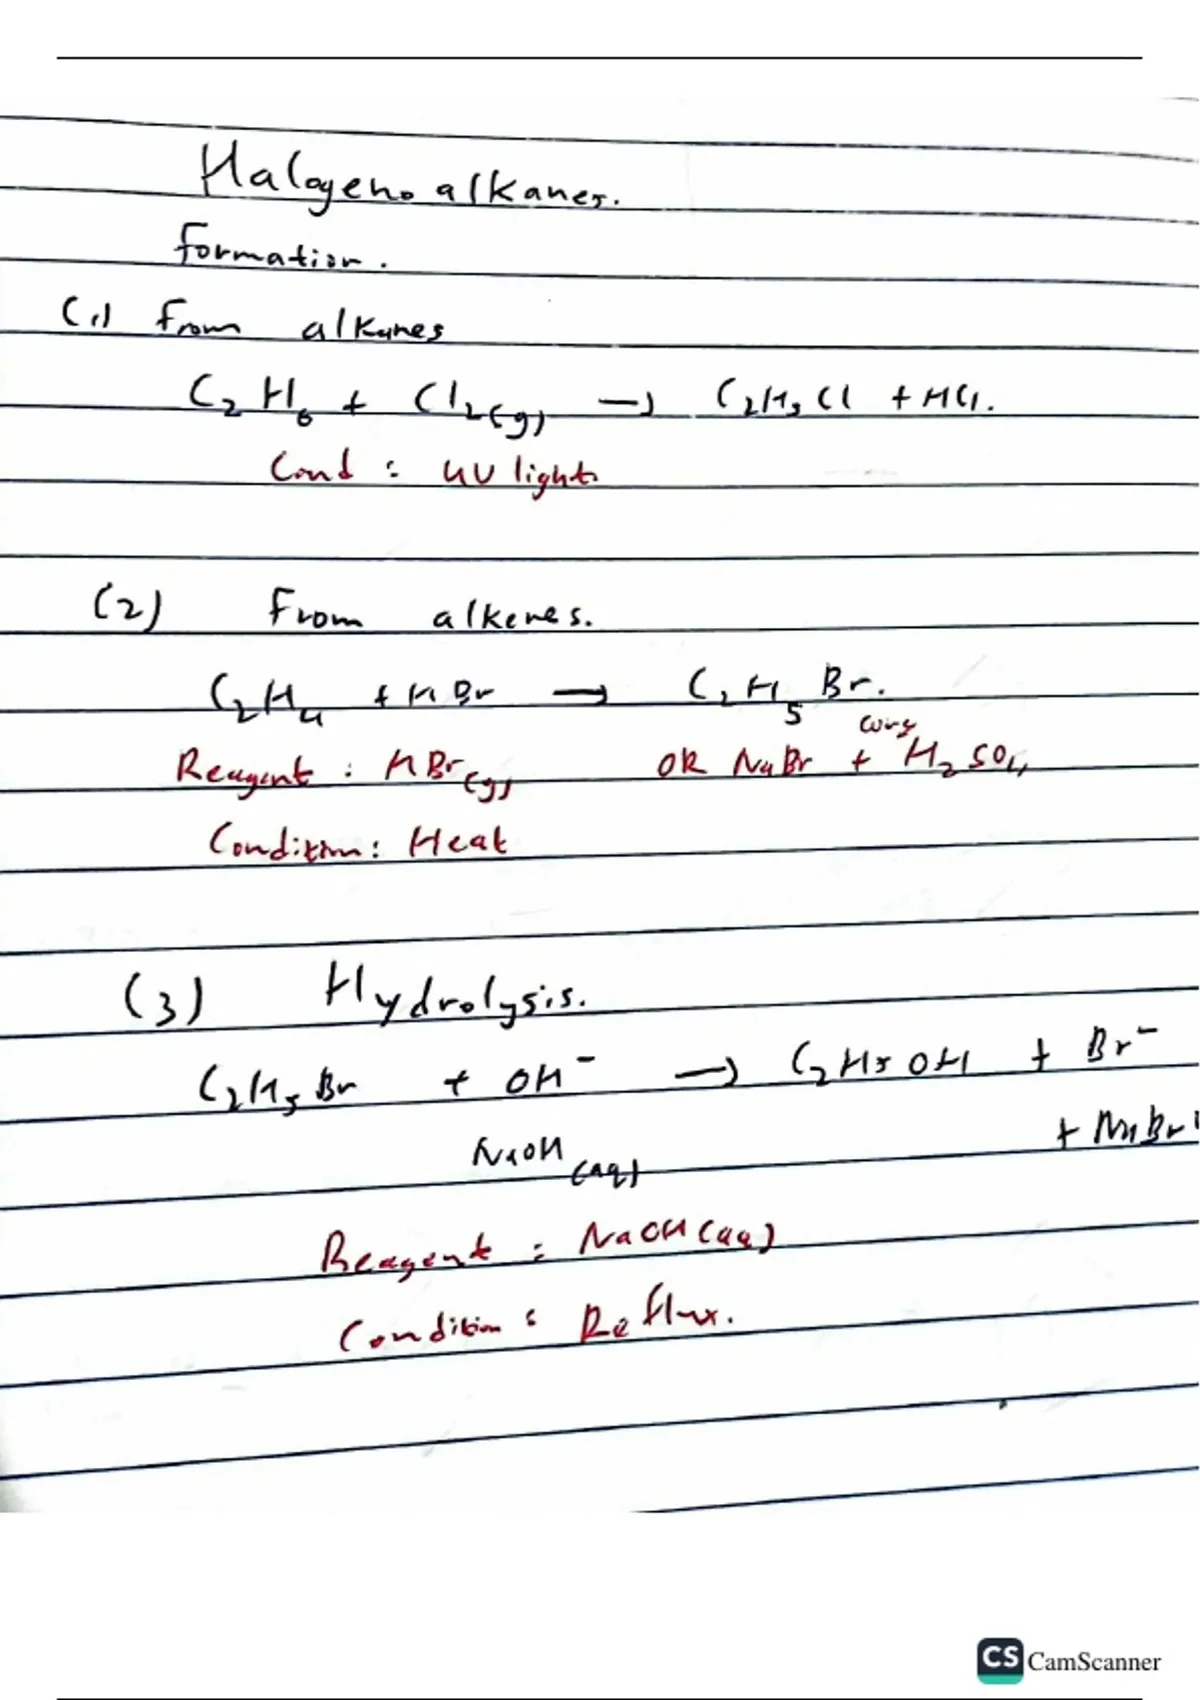 Halogenoalkanes.
Formation.
(1) From alkanes
C₂H₆ + Cl₂(g) → C₂H₅Cl + HCl.
Cond : UV light
(2) From alkenes.
C₂H₄ + HBr → C₂H₅Br.
Reagent : HBr(g) OR NaBr + conc H₂SO₄
Condition: Heat
(3) Hydrolysis.
C₂H₅Br + OH⁻ → C₂H₅OH + Br⁻
NaOH(aq) + NaBr
Reagent : NaOH(aq)
Condition : Reflux.
CS CamScanner